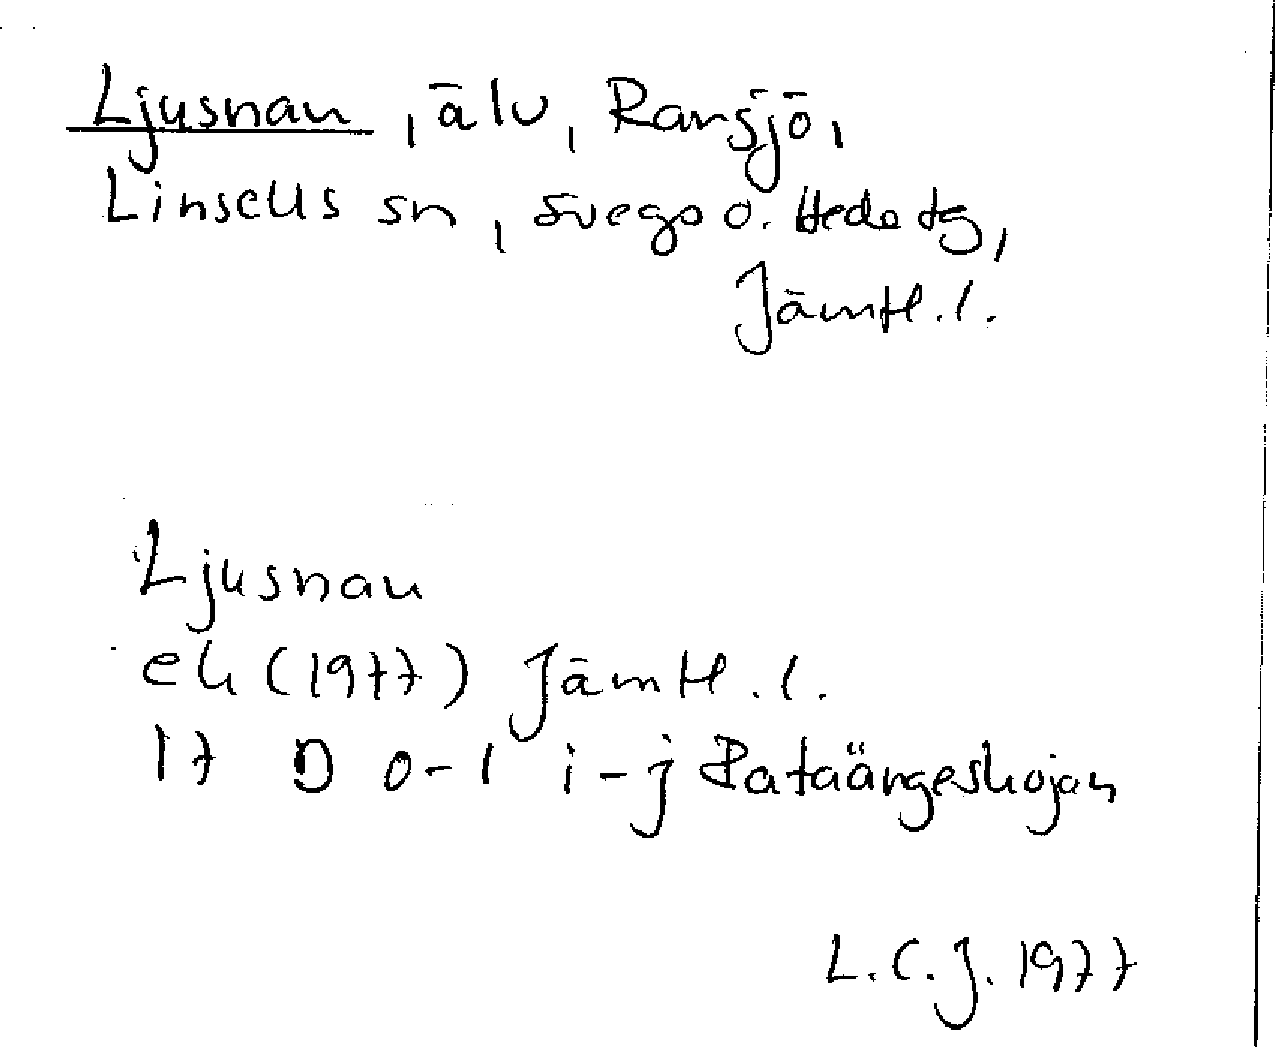 Ljusnan, älv, Ransjö,
Linsells sn, Svegs o. Hede tg,
Jämtl. l.
Ljusnan
ek (1977) Jämtl. l.
17 D 0-1 i-j Pataängeskojan
L.C.J. 1977